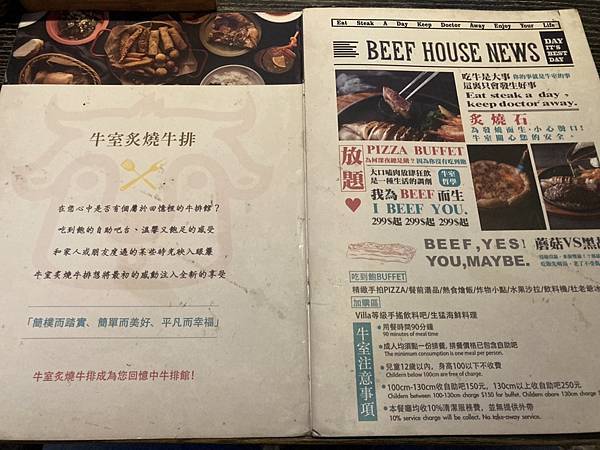 牛室炙燒牛排
在您心中是否有個屬於回憶裡的牛排館？
吃到飽的自助吧台、溫馨又飽足的感受
和家人或朋友度過的某些時光映入眼簾
牛室炙燒牛排想將最初的感動注入全新的享受
「簡樸而踏實、簡單而美好、平凡而幸福」
牛室炙燒牛排成為您回憶中牛排館！
Eat Steak A Day Keep Doctor Away Enjoy Your Life
BEEF HOUSE NEWS
DAY
IT'S
BEST
DAY
吃牛是大事 你的事就是牛室的事
這裏只會發生好事
Eat steak a day,
keep doctor away.
炙燒石
為發燒而生·小心燙口!
牛室關心您的安全。
放題
PIZZA BUFFET
為何深夜總是餓？因為你沒有吃到飽
大口嗑肉放肆狂飲
是一種生活的調劑
牛室
哲學
我為BEEF而生
I BEEF YOU.
299$起 299$起 299$起
BEEF,YES!
YOU,MAYBE.
蘑菇VS黑胡
吃到飽BUFFET
精緻手拍PIZZA/餐前湯品/熱食燴飯/炸物小點/水果沙拉/飲料機/杜老爺冰
加購區
Villa等級手搖飲料吧/生猛海鮮料理
牛室注意事項
用餐時間90分鐘
90 minutes of meal time
成人均須點一份排餐，排餐價格已包含自助吧
The minimum consumption is one meal per person.
兒童12歲以內，身高100以下不收費
Childern below 100cm are free of charge.
100cm-130cm收自助吧150元，130cm以上收自助吧250元
Childern between 100-130cm charge $150 for buffet. Childern above 130cm charge
本餐廳均收10%清潔服務費，並無提供外帶
10% service charge will be collect. No take-away service.